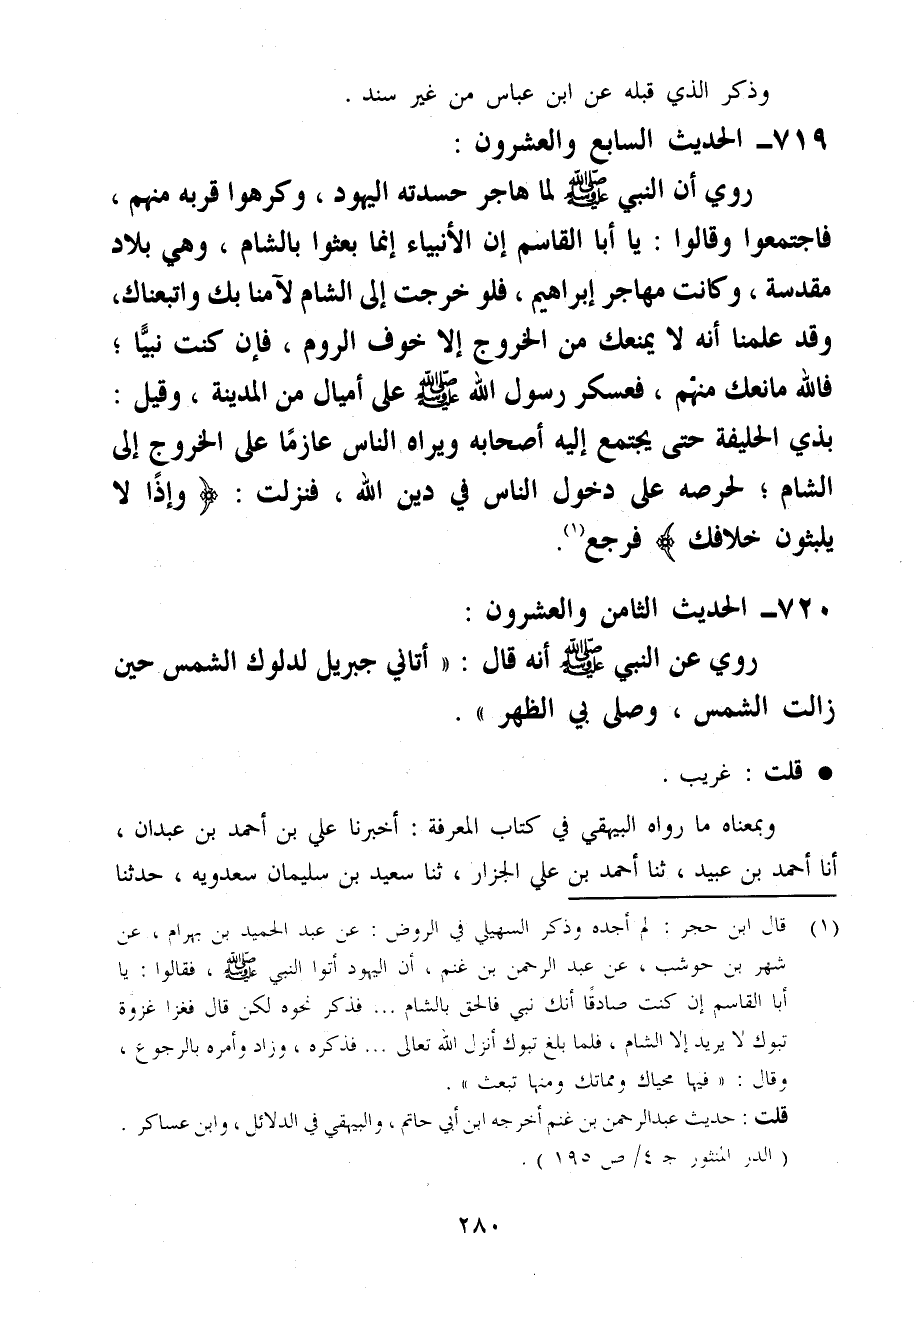 وذكر الذي قبله عن ابن عباس من غير سند .
٧١٩ـ الحديث السابع والعشرون :
روي أن النبي ﷺ لما هاجر حسدته اليهود ، وكرهوا قربه منهم ،
فاجتمعوا وقالوا : يا أبا القاسم إن الأنبياء إنما بعثوا بالشام ، وهي بلاد
مقدسة ، وكانت مهاجر إبراهيم ، فلو خرجت إلى الشام لآمنا بك واتبعناك،
وقد علمنا أنه لا يمنعك من الخروج إلا خوف الروم ، فإن كنت نبيًّا ؛
فالله مانعك منهم ، فعسكر رسول الله ﷺ على أميال من المدينة ، وقيل :
بذي الحليفة حتى يجتمع إليه أصحابه ويراه الناس عازمًا على الخروج إلى
الشام ؛ لحرصه على دخول الناس في دين الله ، فنزلت : ﴿ وإذًا لا
يلبثون خلافك ﴾ فرجع(١).
٧٢٠ـ الحديث الثامن والعشرون :
روي عن النبي ﷺ أنه قال : « أتاني جبريل لدلوك الشمس حين
زالت الشمس ، وصلى بي الظهر » .
● قلت : غريب .
وبمعناه ما رواه البيهقي في كتاب المعرفة : أخبرنا علي بن أحمد بن عبدان ،
أنا أحمد بن عبيد ، ثنا أحمد بن علي الجزار ، ثنا سعيد بن سليمان سعدويه ، حدثنا
(١) قال ابن حجر : لم أجده وذكر السهيلي في الروض : عن عبد الحميد بن بهرام ، عن
شهر بن حوشب ، عن عبد الرحمن بن غنم ، أن اليهود أتوا النبي ﷺ ، فقالوا : يا
أبا القاسم إن كنت صادقًا أنك نبي فالحق بالشام ... فذكر نحوه لكن قال فغزا غزوة
تبوك لا يريد إلا الشام ، فلما بلغ تبوك أنزل الله تعالى ... فذكره ، وزاد وأمره بالرجوع ،
وقال : « فيها محياك ومماتك ومنها تبعث » .
قلت : حديث عبدالرحمن بن غنم أخرجه ابن أبي حاتم ، والبيهقي في الدلائل ، وابن عساكر .
( الدر المنثور جـ ٤/ ص ١٩٥ ) .
٢٨٠